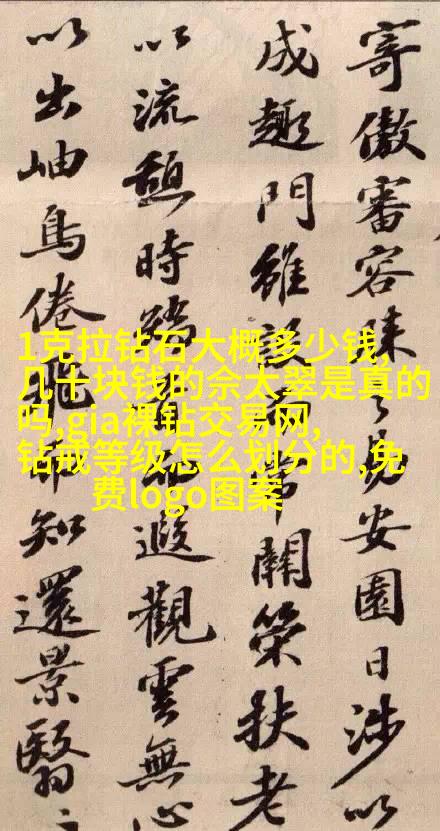 寄傲審容膝之易安園日涉以
成趣門雖設而常關策扶老
以流憩時矯而遐觀雲無心
以出岫鳥倦飛而知還景翳
1克拉钻石大概多少钱,
几十块钱的佘太翠是真的
吗,gia裸钻交易网,
钻戒等级怎么划分的,免
费logo图案